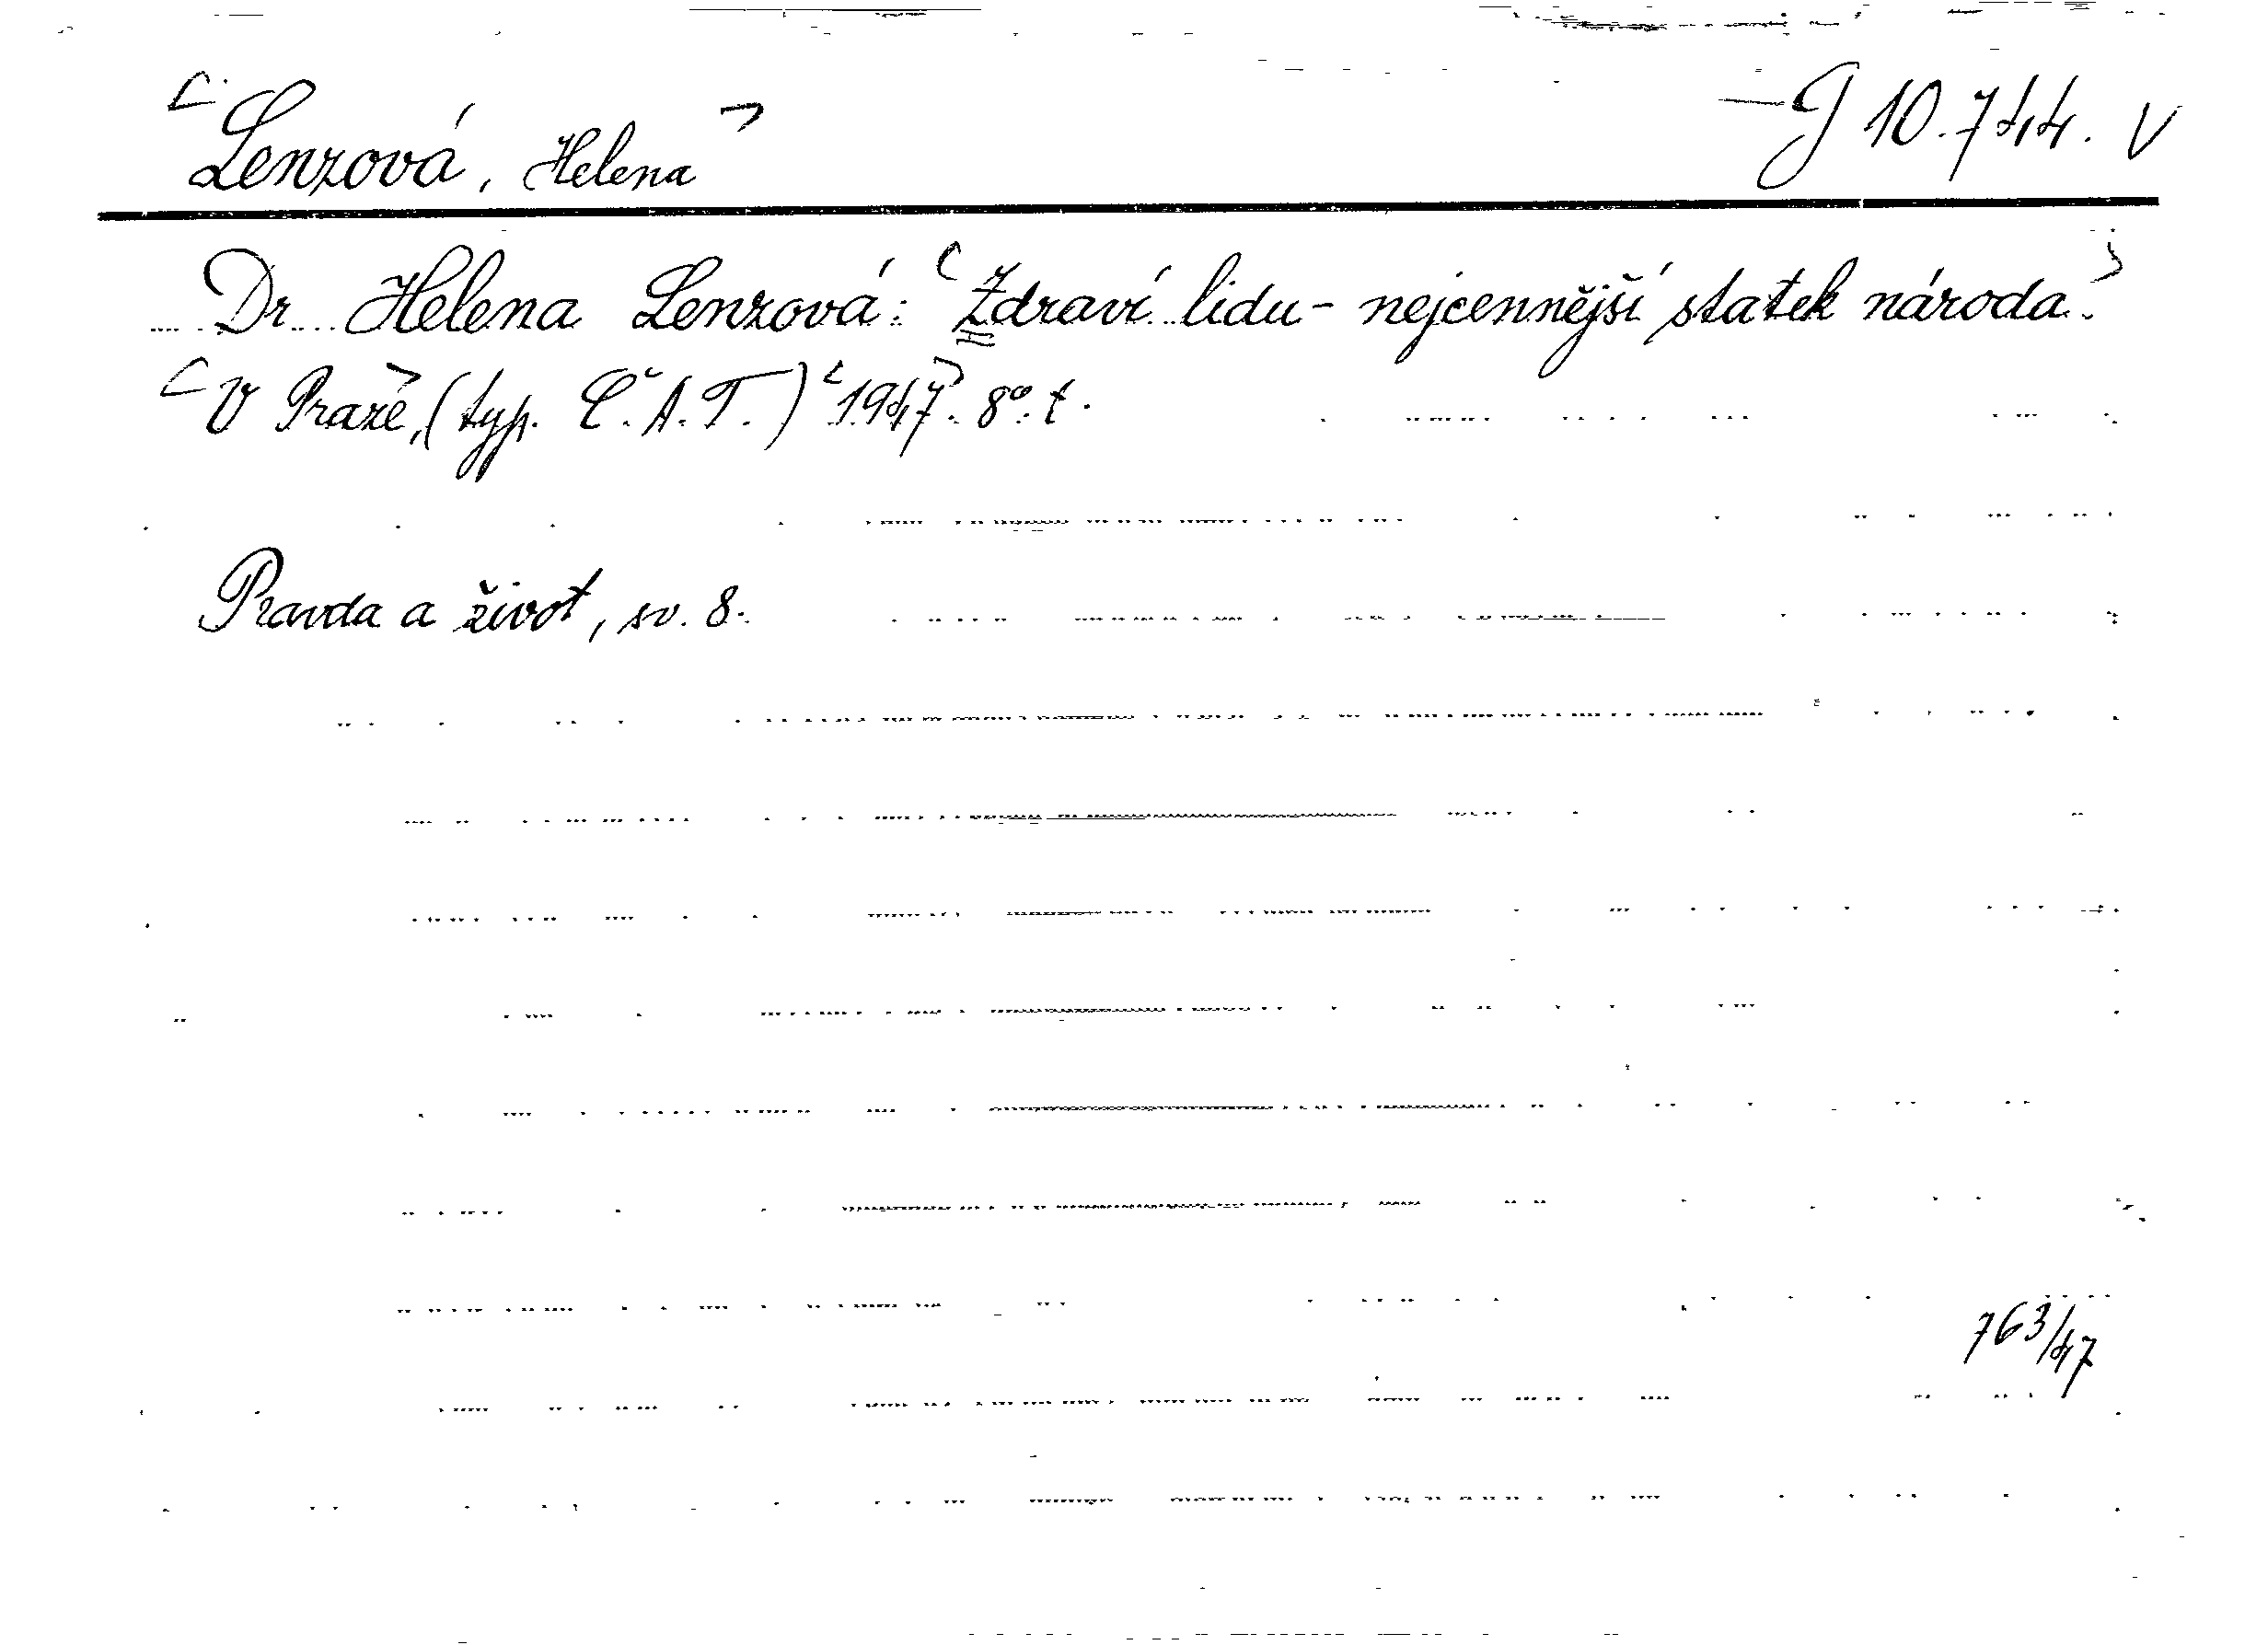 Lenzová, Helena
G 10.744. V
Dr Helena Lenzová: Zdraví lidu - nejcennější statek národa.
V Praze, (typ. Č. A. T.) 1947. 8°. t.
Pravda a život, sv. 8.
763/47